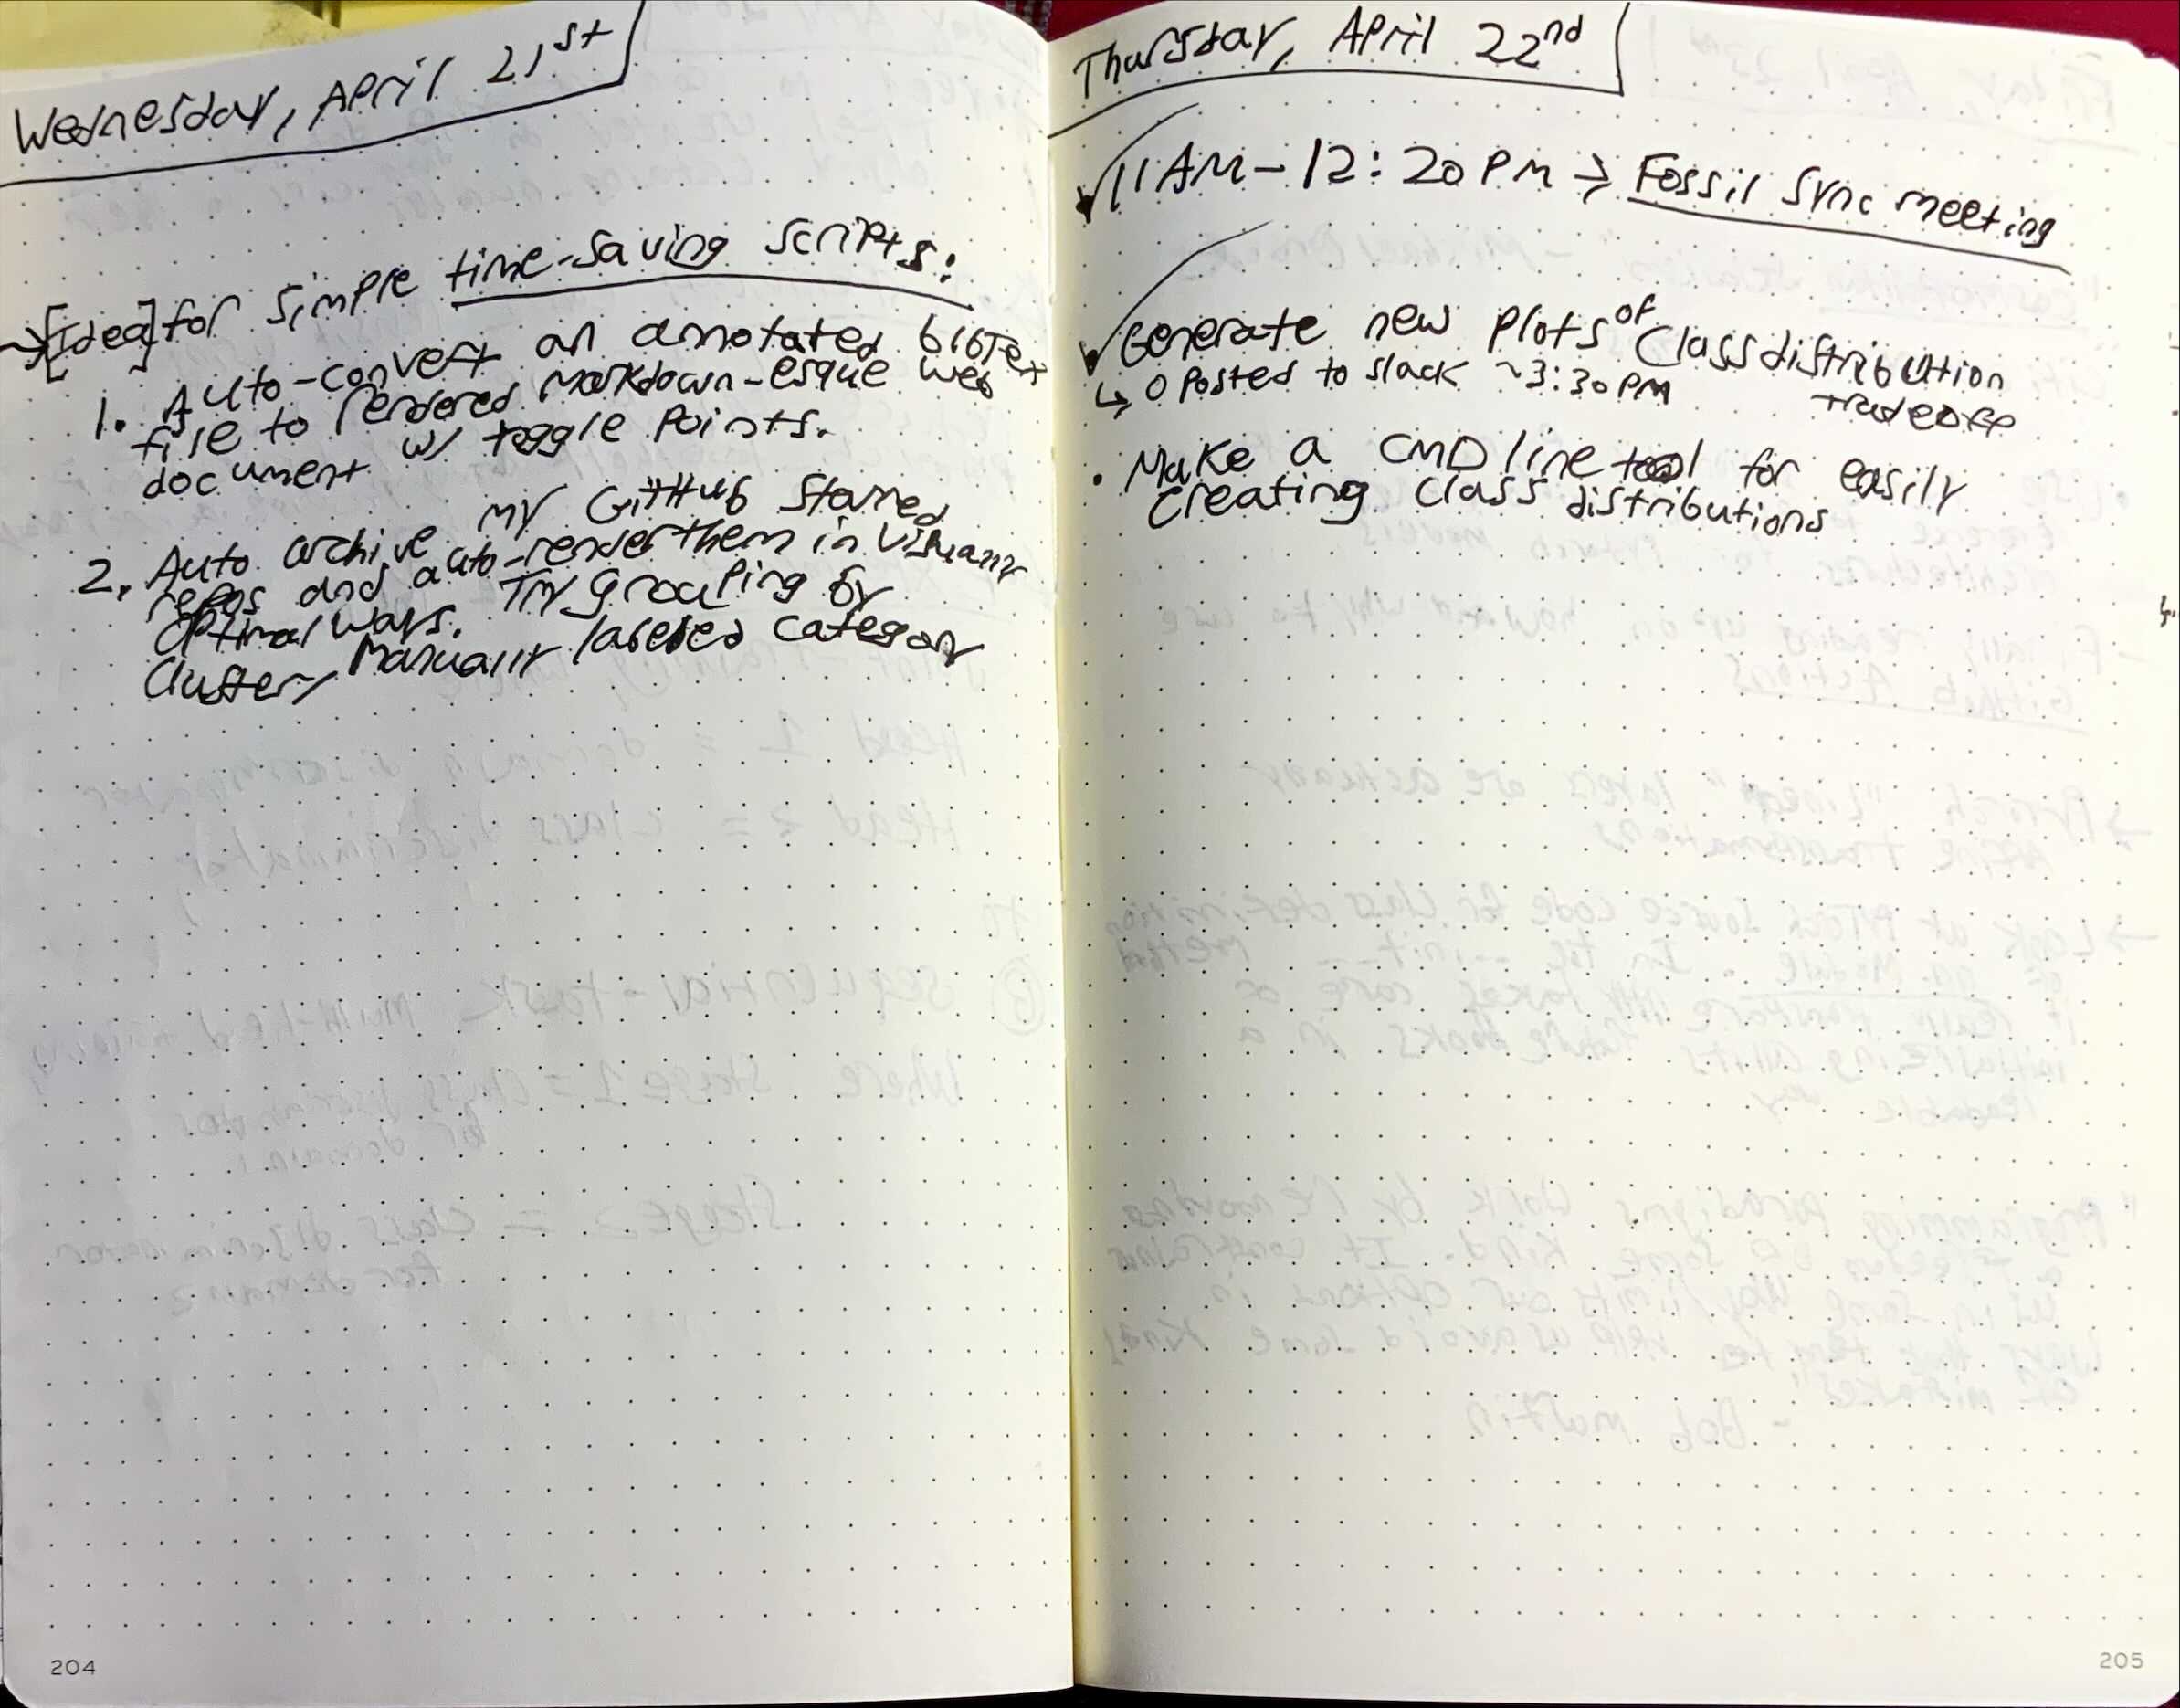 Wednesday, April 21st
→[Idea] for simple time-saving scripts:
1. Auto-convert an annotated bibTex
file to rendered markdown-esque web
document w/ toggle points.
2. Auto archive my GitHub starred
repos and auto-render them in visually
optimal ways. Try grouping by
cluster/manually labeled category
204
Thursday, April 22nd
✓ 11AM-12:20PM → Fossil Sync meeting
✓ Generate new plots of Class distribution
tradeoff
↳ o Posted to slack ~3:30PM
• Make a CMD line tool for easily
creating class distributions
205